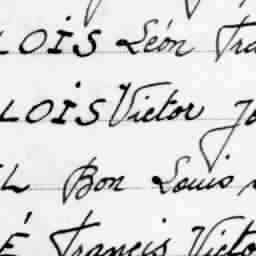 LOİS Léon Fra
LOİS Victor Jo
L Bon Louis
É Francis Victo